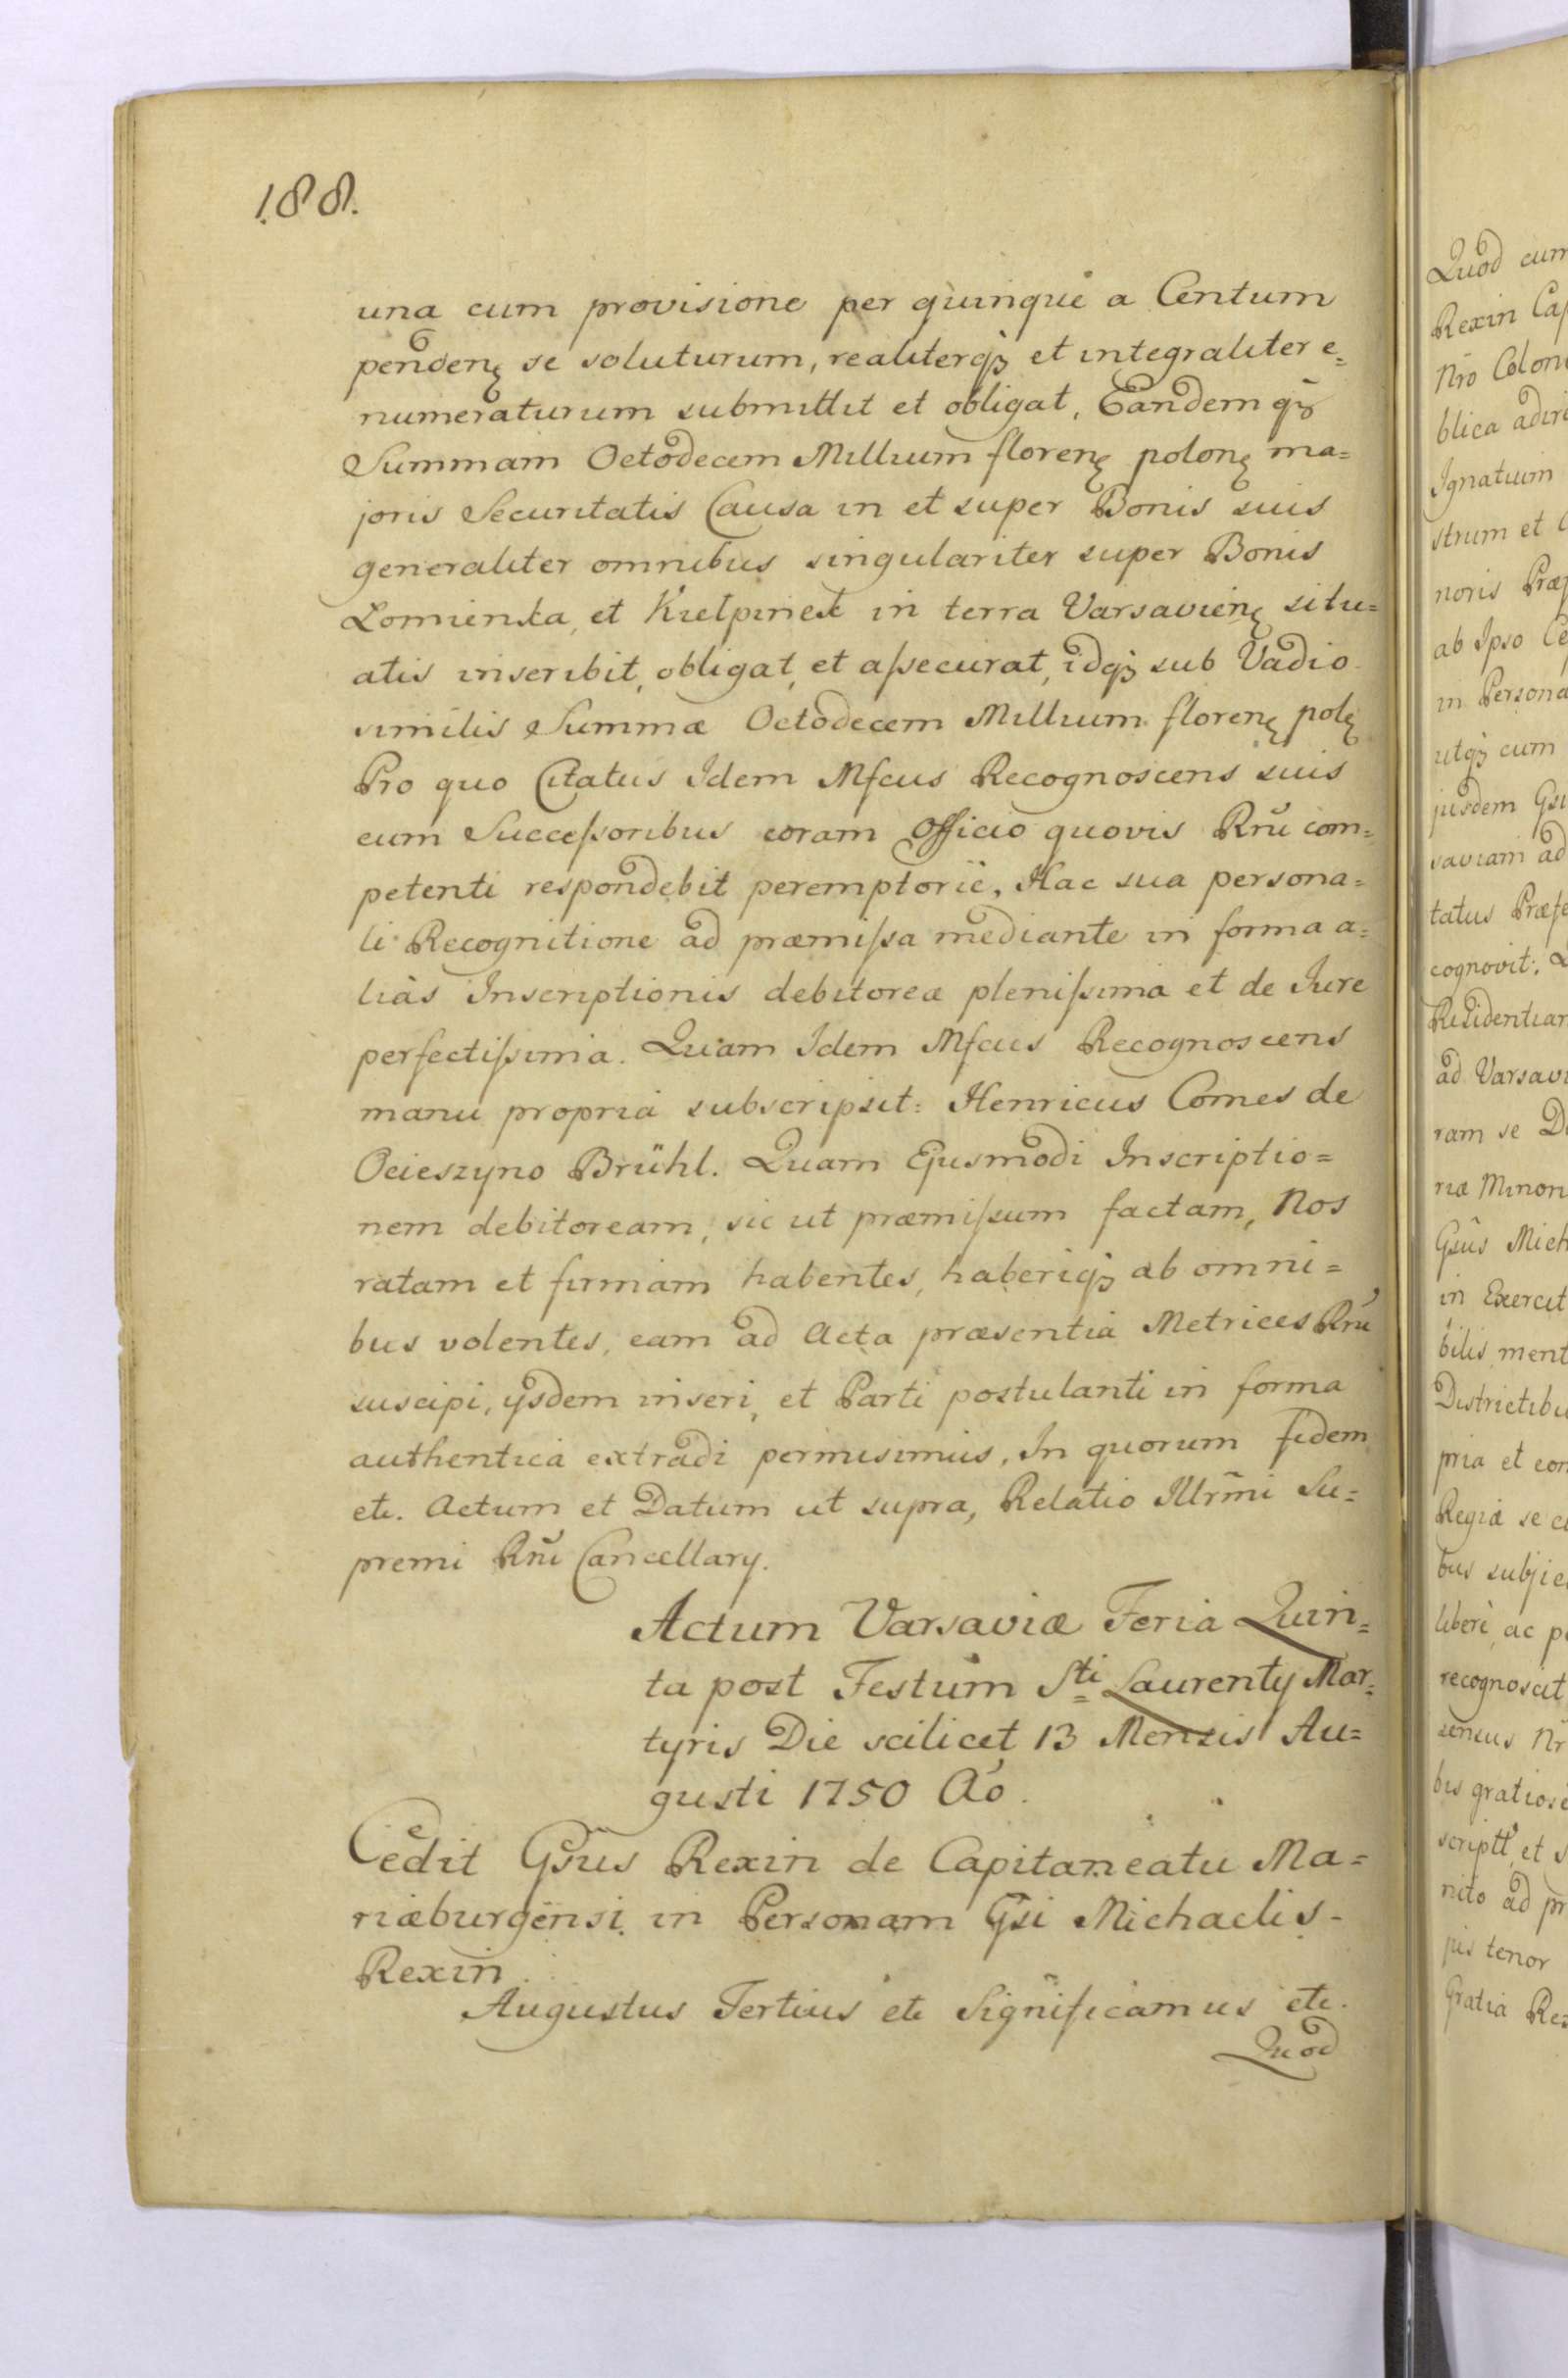 188.
una cum provisione per quinque a Centum
pendenę se soluturum, realiterqȝ et integraliter e=
numeraturum submittit et obligat, Eandemqȝ
Summam Octodecem Millium florenę polonę ma=
joris Securitatis Causa in et super Bonis suis
generaliter omnibus singulariter super Bonis
Lomienka, et Kiełpinek in terra Varsavienę situ=
atis inscribit, obligat, et aſsecurat, idqȝ sub Vadio
similis Summæ Octodecem Millium florenę polę
Pro quo Citatus Idem Mfcus Recognoscens suis
cum Succeſsoribus coram Officio quovis Rnũ com=
petenti respondebit peremptoriè, Hac sua persona=
li Recognitione ad præmiſsa mediante in forma a=
liàs Inscriptionis debitoreæ pleniſsima et de Jure
perfectiſsima. Quam Idem Mfcus Recognoscens
manu propria subscripsit: Henricus Comes de
Ocieszyno Brühl. Quam Ejusmodi Inscriptio=
nem debitoream, sic ut præmiſsum factam, Nos
ratam et firmam habentes, haberiqȝ ab omni=
bus volentes, eam ad Acta præsentia Metrices Rnũ
suscipi, ijsdem inseri, et Parti postulanti in forma
authentica extradi permisimus, In quorum fidem
etc. Actum et Datum ut supra, Relatio Illrm̃i Su=
premi Rnĩ Cancellarij.
Actum Varsaviæ Feria Quin=
ta post Festum Sti Laurentij Mar=
tyris Die scilicet 13 Mensis Au=
gusti 1750 Aõ.
Cedit Gsũs Rexin de Capitaneatu Ma=
riæburgensi in Personam Gsĩ Michaelis
Rexin.
Augustus Tertius etc Significamus etc.
Quod
Quod cum
Rexin Cap
Nrõ Colon
blica adiri
Ignatium
strum et
noris Præf
ab Ipso Ce
in Persona
utqȝ cum
jusdem Gsi
saviam ad
tatus Præfe
cognovit:
Residentiam
ad Varsavi
ram se De
riæ Minor
Gsũs Mich
in Exercit
bilis, ment
Districtibu
pria et con
Regiæ se
bus subjie
liberè, ac p
recognoscit
bis gratiose
scriptt, et s
nito ad pr
jus tenor
Gratia Rex